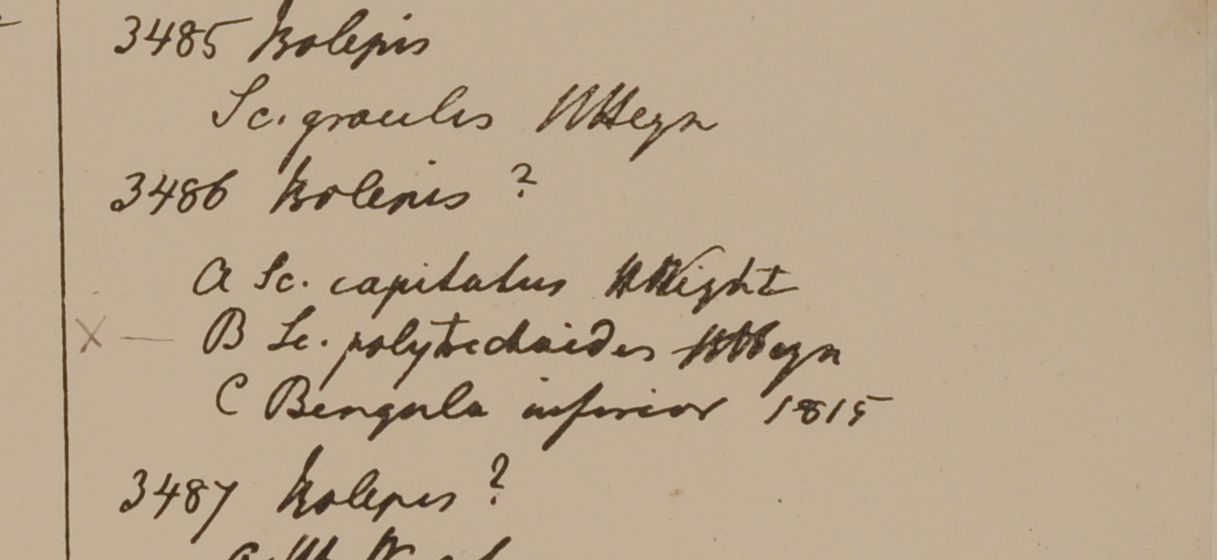 3485 Isolepis
Sc. gracilis HHeyn
3486 Isolepis ?
a Sc. capitatus HWight
X — B Sc. polytrichoides HHeyn
C Bengala inferior 1815
3487 Isolepis ?